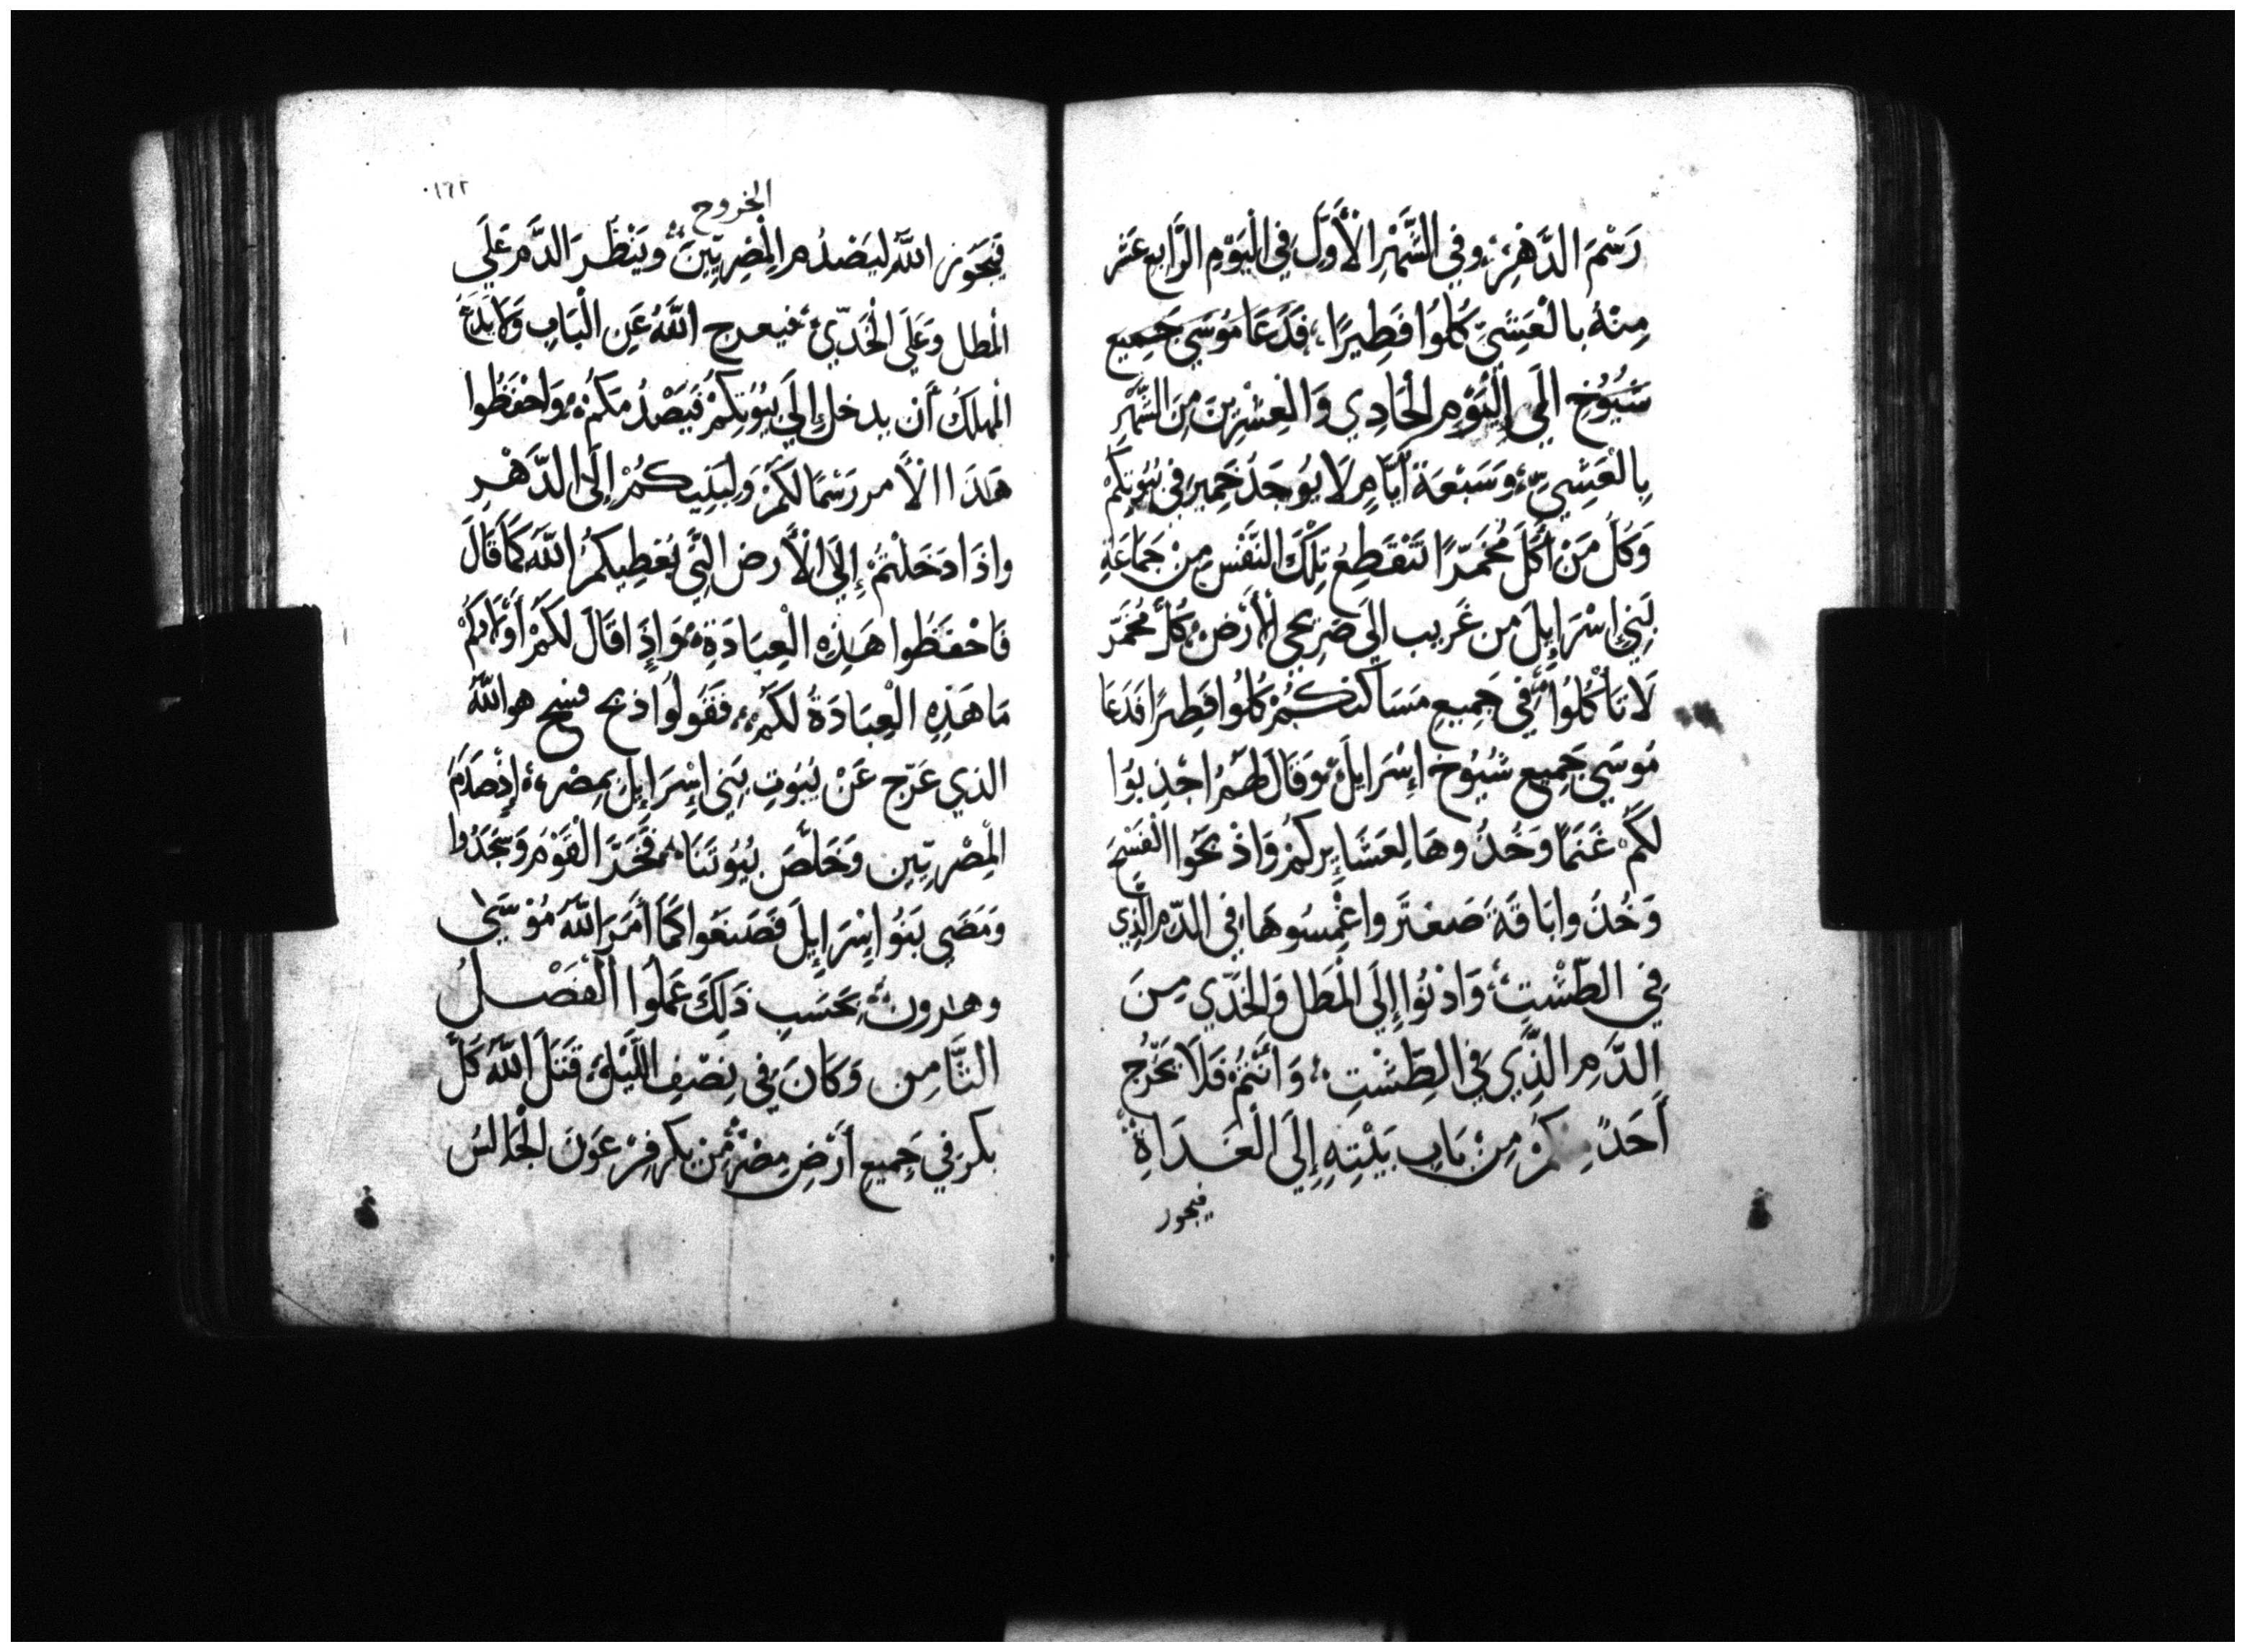 رَسْمَ الدَّهْرِ، وفي الشَّهْرِ الأَوَّلِ في الْيَوْمِ الرَّابِعِ عَشَر
مِنْهُ بالْعَشِيِّ كُلُوا فَطِيرًا، فَدَعَا مُوسَي جَمِيع
شُيُوُخ الَي الْيَوْمِ الْحَادِي وَالْعِشْرِينَ مِنَ الشَّهْرِ
بِالْعَشِيِّ، وَسَبْعَة أَيَّامٍ لَا يُوجَدْ خَمِير فِي بُيُوتِكُمْ
وَكُل مَنْ أَكَلَ مُخَمَّرًا تَنْقَطِعُ تِلْكَ النَّفْس مِنْ جَمَاعَةِ
بَنِي اسْرَايِلَ من غَرِيب الَي صَرِيحي الأَرْض، كُلّ مُخَمَّر
لَا تَأْكُلُوا، فِي جَمِيعِ مَسَاكنكُمْ كُلُوا فَطِيرًا فَدَعَا
مُوسَي جَمِيع شُيُوُخ اسْرَايِلَ، وَقَالَ لَهُمُ اجْذِبُوا
لَكُمْ غَنَمًا وَخُذُوهَا لِعَشَايِركُمْ وَاذْبَحُوا الْفَسْحَ
وَخُذُوا بَاقَةَ صَعْتَر واغْمِسُوهَا فِي الدَّمِ الَّذِي
فِي الطَّشْتِ، وَادْنُوا إِلَي الْمَطَل وَالخَدَّي مِنَ
الدَّمِ الَّذِي فِي الطَّشْتِ، وَأَنْتُمْ فَلَا يَخْرُج
أَحَدٌ مِنكُمْ مِنْ بَابِ بَيْتِهِ إِلَي الْغَدَاةِ
فيجوز
الخروج
١٩٢
فَيَجُوزُ اللَّه لِيَصْدُم الْمِصْرِيِّينَ، وَيَنْظُرَ الدَّمَ عَلَي
الْمطل وَعَلَي الْخَدَّيْ، فيعرج اللَّهُ عَنِ الْبَابِ وَلا يَدَعُ
الْمهلكُ أَن يدخل إِلَي بُيُوتِكُمْ فَيَصْدُمَكُمْ، وَاحْفَظُوا
هَذَا الأَمر رَسْمًا لَكُمْ وَلِبَنِيكُمْ إِلَي الدَّهْرِ
واذَا دَخَلْتُمْ إِلَي الأَرض الَّتِي يُعْطِيكُمُ اللَّه كَمَا قَالَ
فَاحْفَظُوا هَذِهِ الْعِبَادَةِ، وَاذَا قَالَ لَكُمْ أَوْلَادكُمْ
مَا هَذِهِ الْعِبَادَةُ لَكُمْ، فَقُولُوا ذبح فسح هو اللَّه
الذي عَرّج عَنْ بُيُوتِ بَنِي إِسْرَايِلَ بِمِصْر، إِذْ صَدَمَ
الْمِصْرِيِّين وَخَلَّصَ بُيُوتَنَا، فَخَرَّ الْقَوْمَ وَسَجَدُوا
وَمَضَي بَنُو إِسْرَايِلَ فَصَنَعُوا كَمَا أَمَرَ اللَّه مُوْسَي
وهارون، بحَسَبِ ذَلِكَ عَمِلُوا الْفَصْلُ
الثَّامِن وَكَانَ فِي نِصْفِ اللَّيْلِ، قَتَلَ اللَّهُ كُلَّ
بكر فِي جَمِيعِ أَرْضِ مِصْرَ، مِنْ بكر فِرْعَوْنَ الْجَالسُ